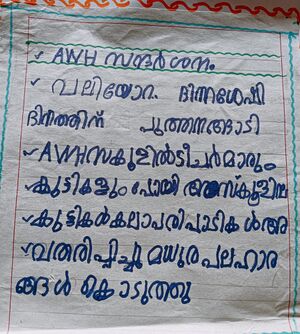 ✓ AWH സന്ദർശനം
✓ വലിയോറ. ഭിന്നശേഷി
ദിനത്തിന് പുത്തനങ്ങാടി
✓ AWHസകൂളിൽടീച്ചർമാരും
✓ കുട്ടികളും പോയി അസ്കൂളിലെ
✓ കുട്ടികൾകലാപരിപാടികൾഅ
✓ വതരിപ്പിച്ചു മധുരപലഹാര
ങ്ങൾ കൊടുത്തു